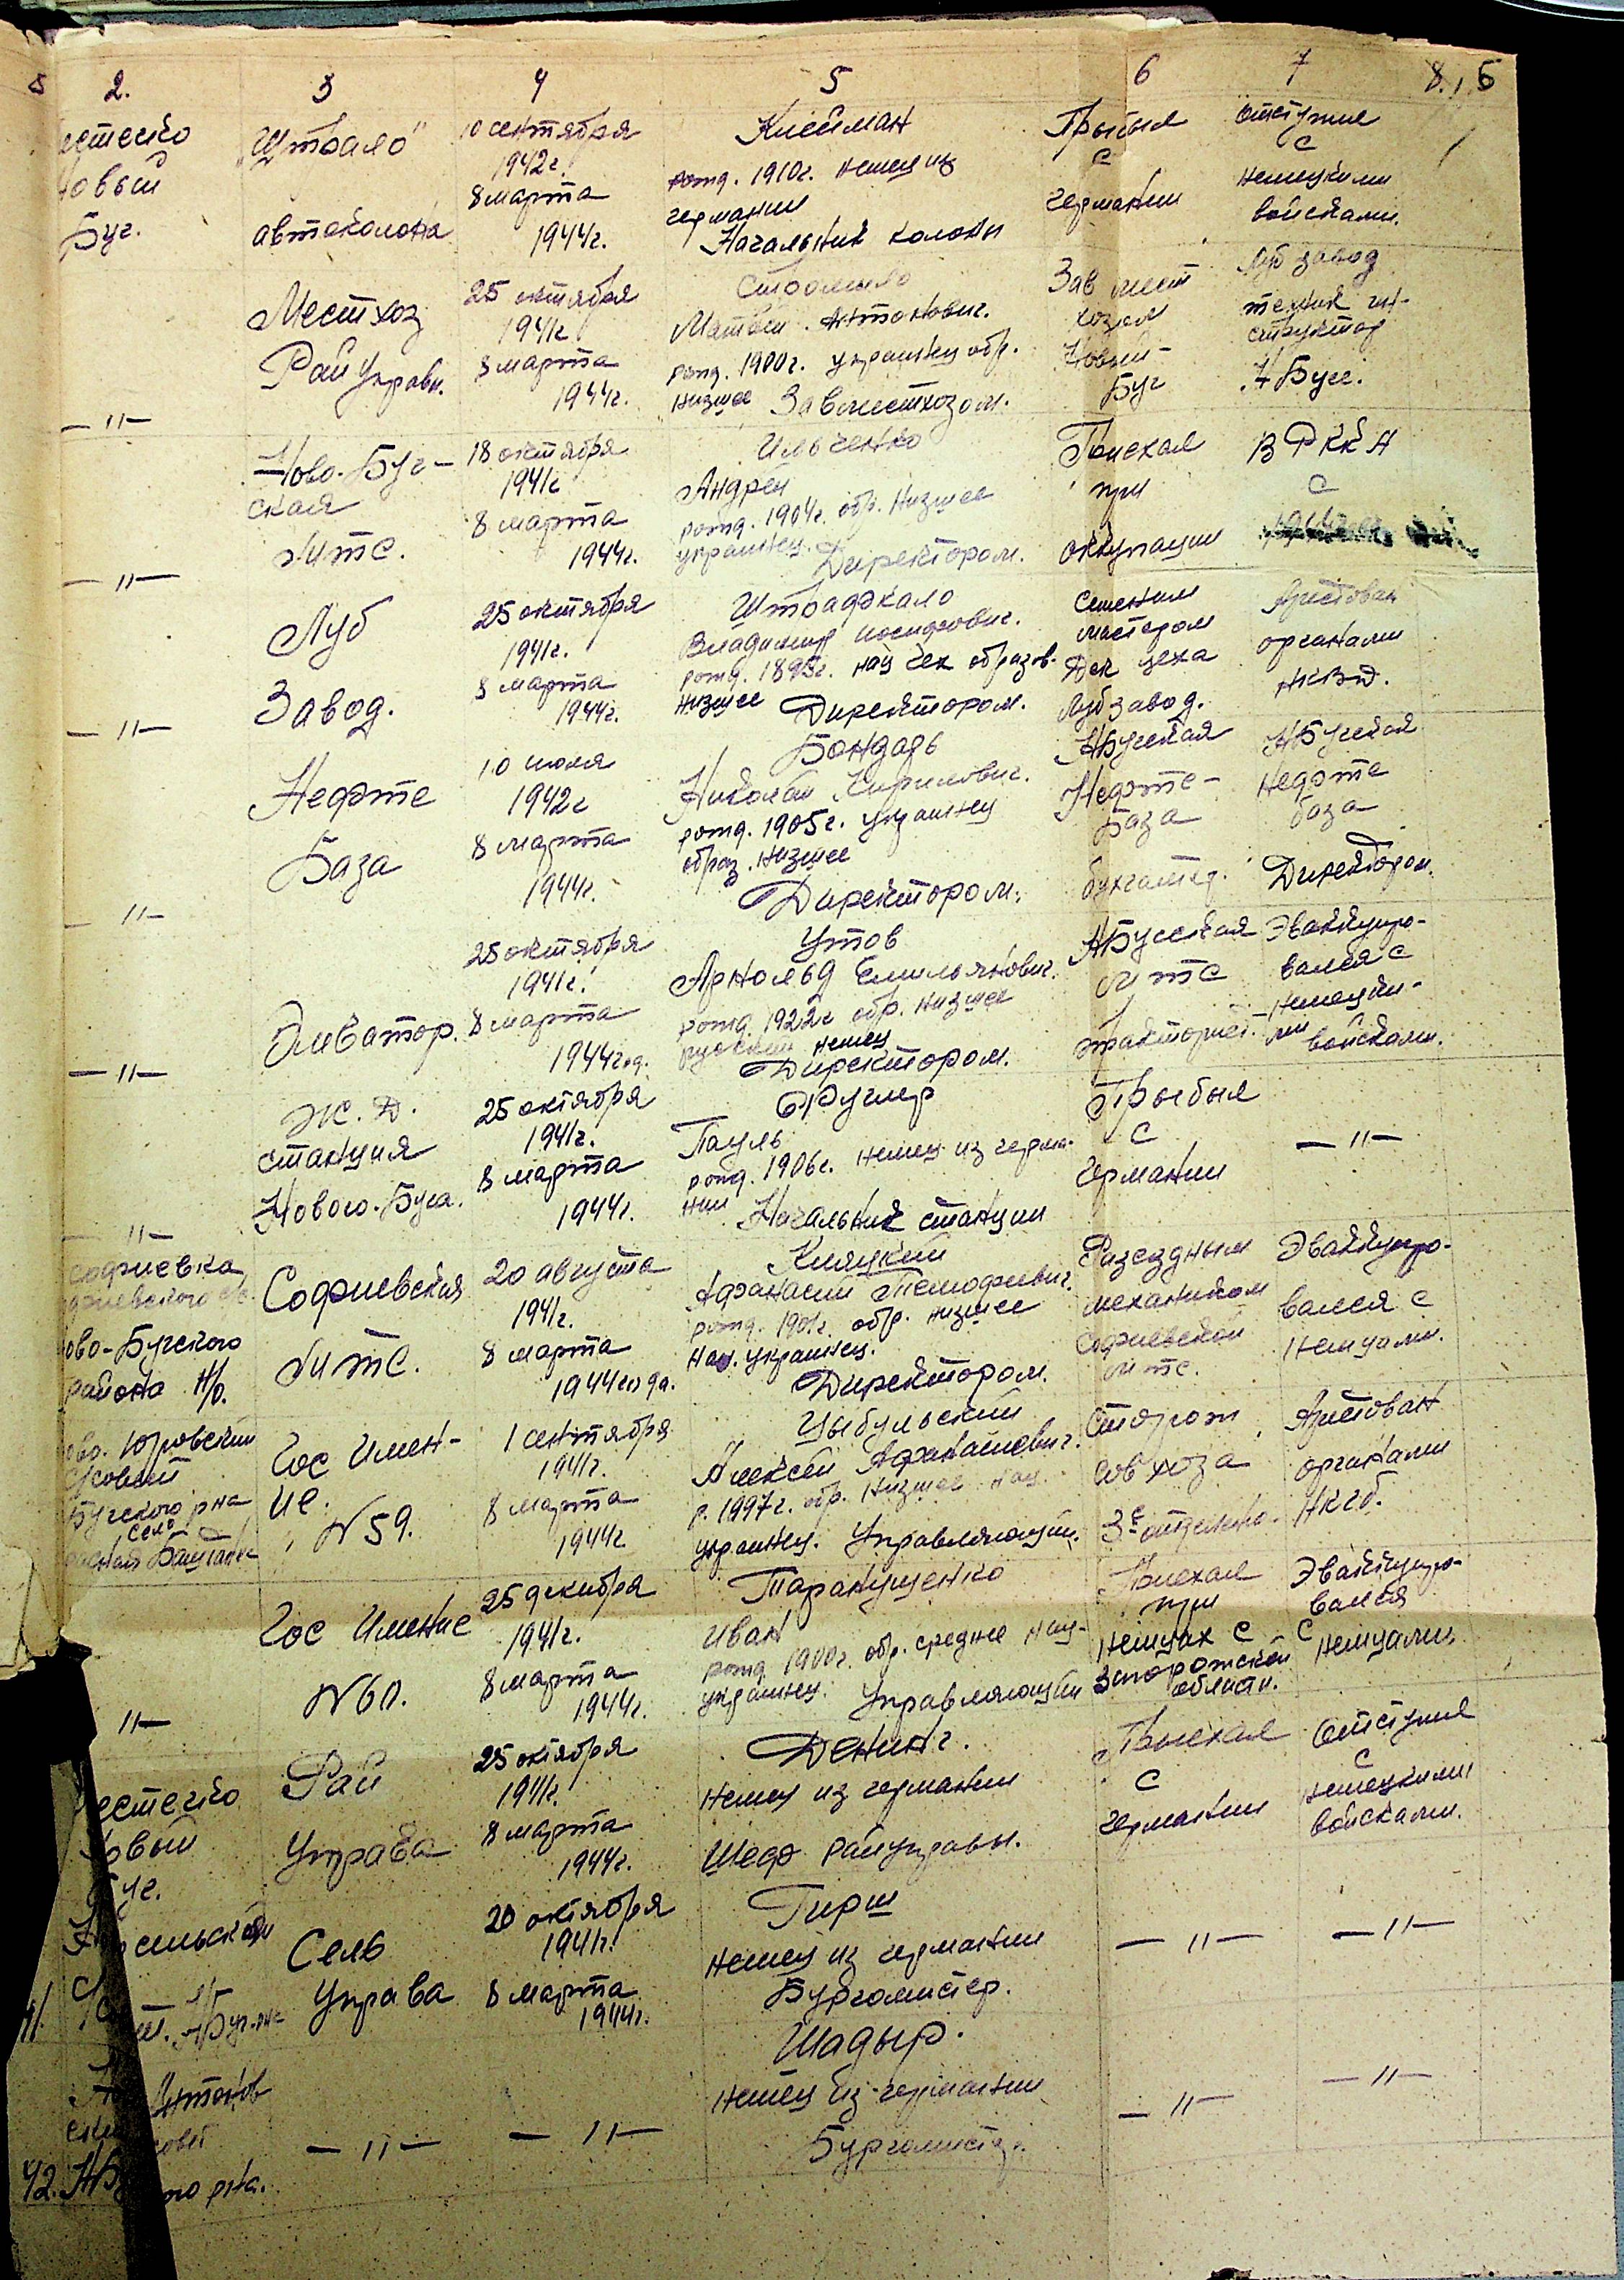 2. 3 4 5 6 7 8. 5
местечко
Новый
Буг.
"Штрало"
автоколона
10 сентября
1942г.
8 марта
1944г.
Клейман
рожд. 1910г. немец из
германии
Начальник колоны
Прибыл
с
германии
отступил
с
немецкими
войсками.
— " —
Местхоз
Райуправ.
25 октября
1941г
8 марта
1944г.
Матвей Антонович.
рожд. 1900г. украинец обр.
низшее Завместхозом.
Зав мест
хозом
Новый-
Буг
Луб завод
техник ин-
структор
Н Буг.
— " —
Ново-Буг-
ская
МТС.
18 октября
1941г
8 марта
1944г.
Ильченко
Андрей
рожд. 1904г. обр. Низшее
украинец. Директором.
Приехал
при
оккупации
В РККА
с
— " —
Луб
Завод.
25 октября
1941г.
8 марта
1944г.
Владимир Иосифович.
нац чех образов-
низшее Директором.
Сменным
мастером
цеха
Лубзавод.
Арестован
органами
НКВД.
— " —
Нефте
База
10 июля
1942г
8 марта
1944г.
Бондарь
Николай Кирилович.
рожд. 1905г. украинец
образ. низшее
Директором.
НБугская
Нефте-
База
бухгалтер.
НБугская
Нефте
база
Директором.
— " —
Элеватор.
25 октября
1941г.
8 марта
1944год.
Утов
Арнольд Емильянович.
рожд. 1922г обр. низшее
русский немец
Директором.
НБугская
МТС
тракторист.
Эвакуиро-
вался с
немецки-
ми войсками.
— " —
Ж. Д.
станция
Нового-Буга.
25 октября
1941г.
8 марта
1944г.
Пауль
рожд. 1906г. немец из герма-
нии Начальник станции
Прибыл
с
германии
— " —
Софиевка
Ново-Бугского
района Н/о.
Софиевская
МТС.
20 августа
1941г.
8 марта
1944года.
Афанасий Темофиевич.
рожд. 1901г. обр. низшее
нац. украинец.
Директором.
Разездным
механиком
Софиевской
МТС.
Эвакуиро-
вался с
немцами.
Бугского рна
село
Гос Имен-
ие.
N 59.
1 сентября
1941г.
8 марта
1944г
Цыбульский
Алексей Афанасиевич.
р. 1997г. обр. Низшее нац.
украинец. Управляющий.
Сторож
совхоза
Арестован
органами
НКГБ.
— " —
Гос Имение
N 60.
25 декабря
1941г.
8 марта
1944г.
Таранущенко
Иван
рожд 1900г. обр. среднее нац-
украинец. Управляющий
Приехал
при
немцах с
Запорожской
области.
Эвакуиро-
вался
с немцами.
местечко
Новый
Буг.
Рай
Управа
25 октября
1941г.
8 марта
1944г.
Денинг.
немец из германии
Шеф райуправы.
Приехал
с
германии
Отступил
с
немецкими
войсками.
41.
Сель
Управа
20 октября
1941г.
8 марта
1944г.
Гирш
немец из германии
Бургомистер.
— " — — " —
42.
— " — — " —
Шадыр.
немец из германии
Бургомистр.
— " — — " —